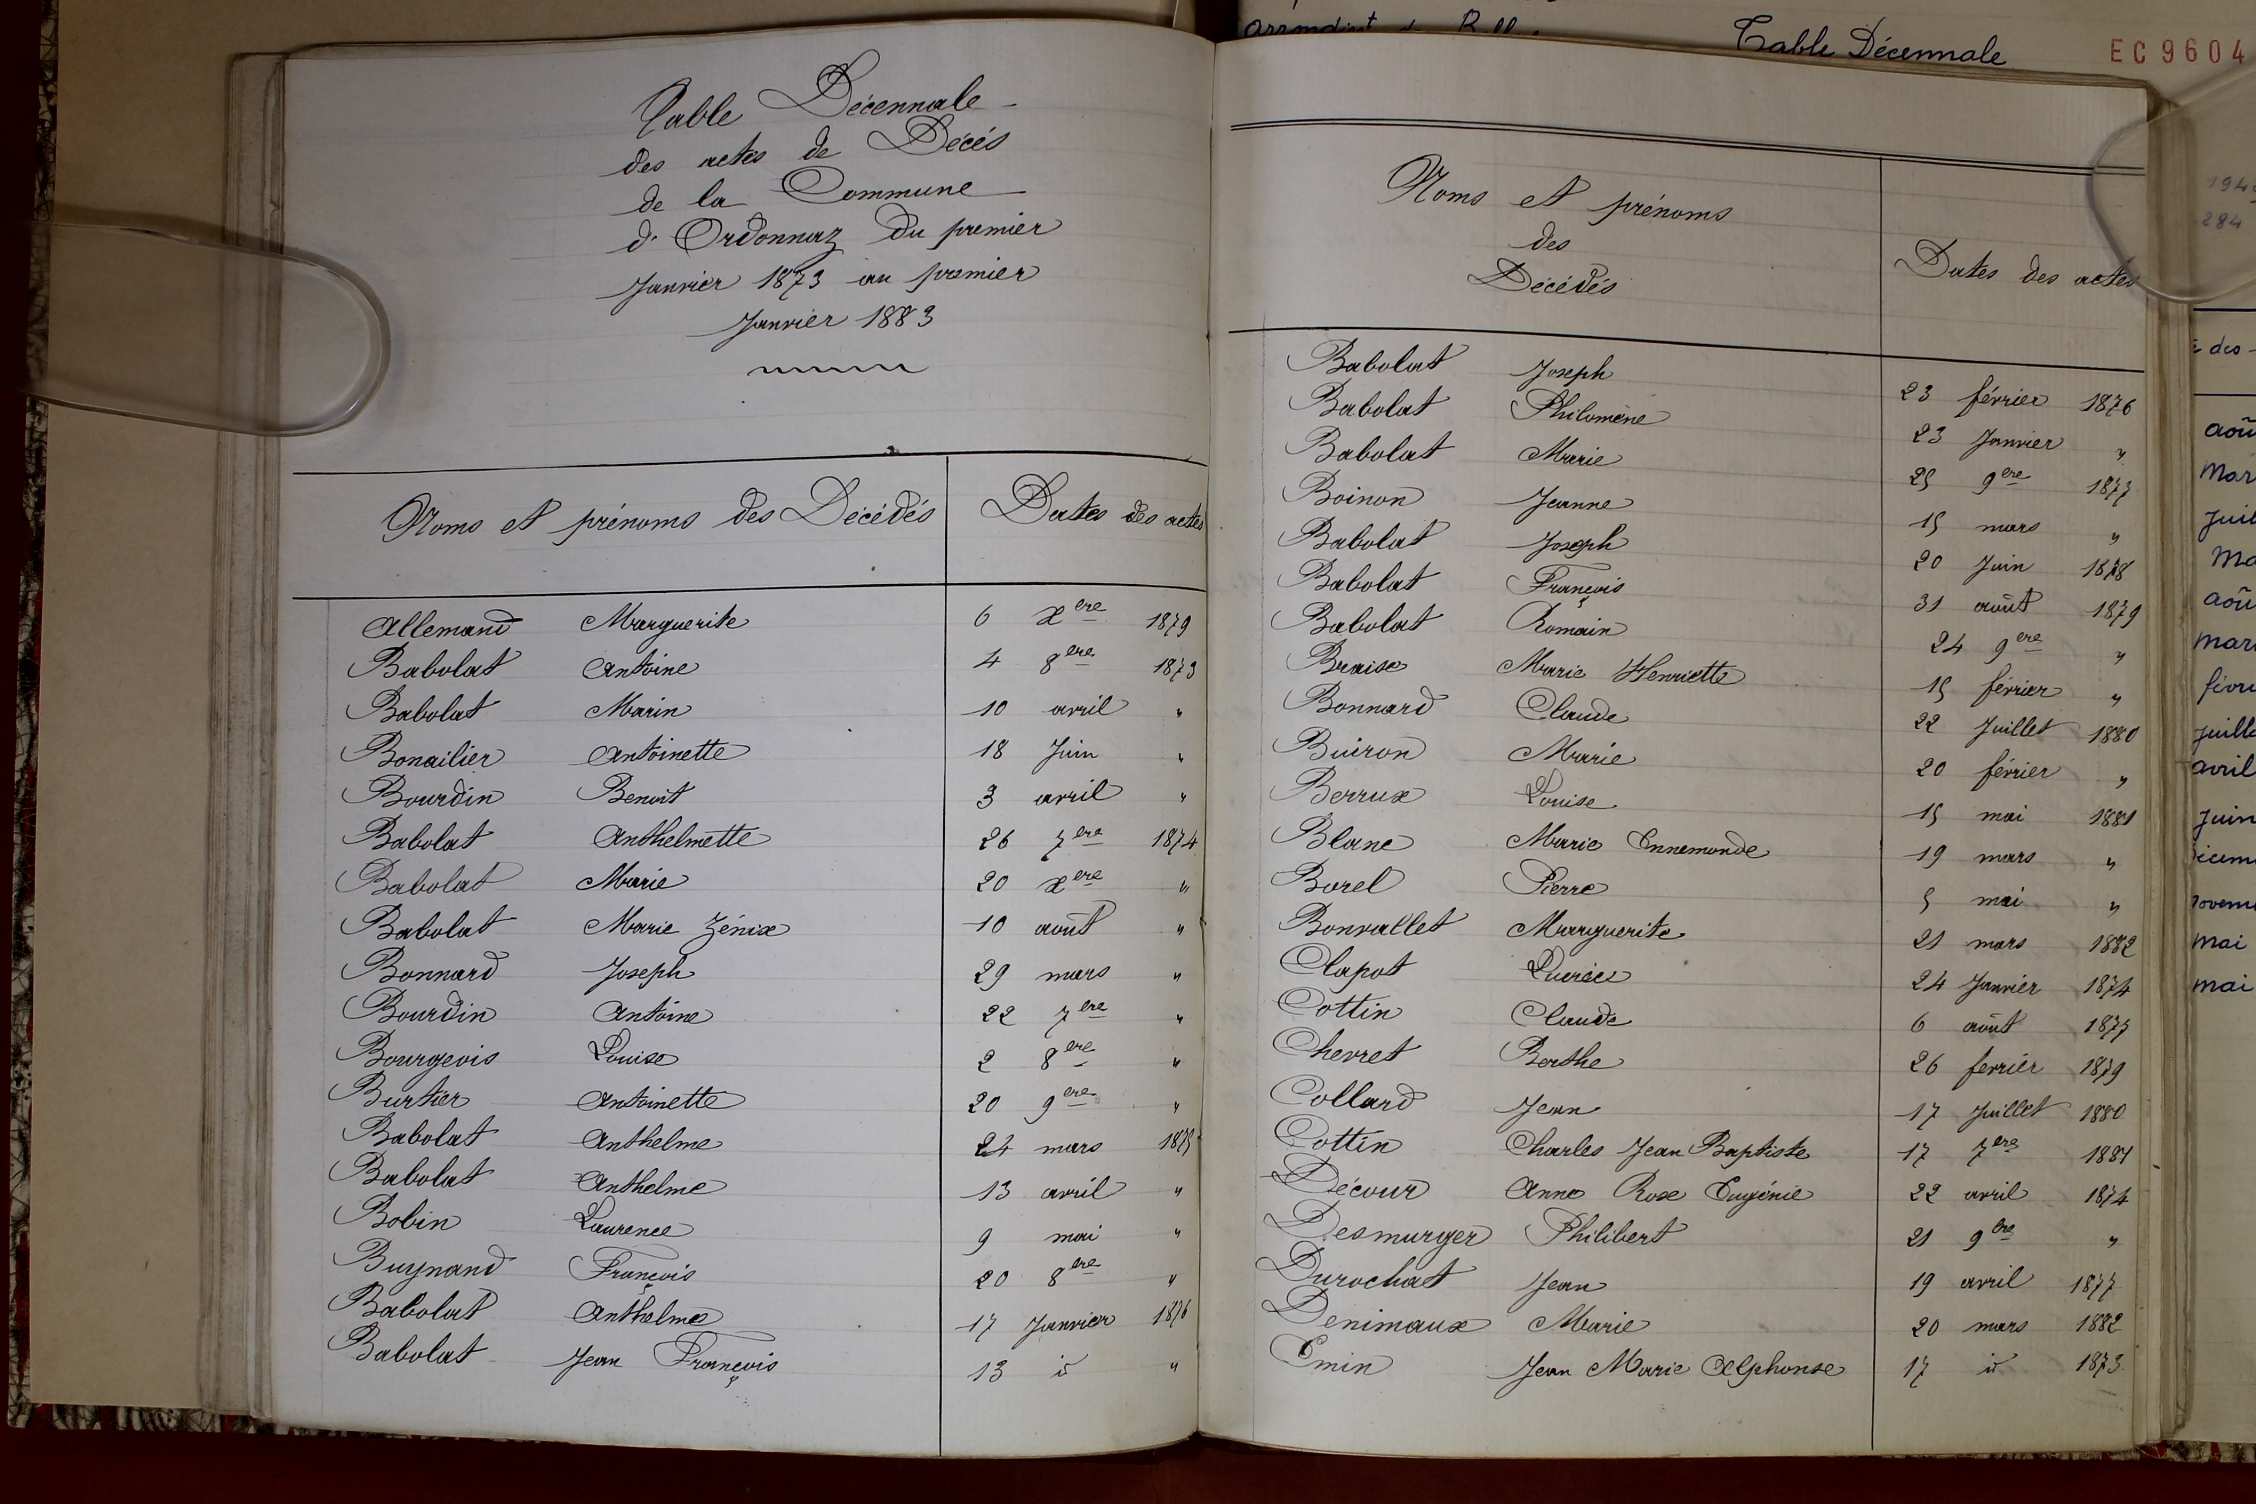 Table Décennale
des actes de Décés
de la Commune
d'Ordonnaz du premier
Janvier 1873 au premier
Janvier 1883
Noms et prénoms des Décédés Dates des actes
Allemand Marguerite 6 Xere 1879
Babolat Antoine 4 8ere 1873
Babolat Marin 10 avril "
Bonailier Antoinette 18 Juin "
Bourdin Benoit 3 avril "
Babolat Anthelmette 26 7ere 1874
Babolat Marie 20 Xere "
Babolat Marie Zénix 10 août "
Bonnard Joseph 29 mars "
Bourdin Antoine 22 7ere "
Bourgeois Louise 2 8ere "
Burtier Antoinette 20 9ere "
Babolat Anthelme 24 mars 1875
Babolat Anthelme 13 avril "
Bobin Laurence 9 mai "
Buynand François 20 8ere "
Babolat Anthelme 17 Janvier 1876
Babolat Jean François 13 id "
Table Décennale EC 9604
Noms et prénoms
des
Décédés
Dates des actes
Babolat Joseph 23 février 1876
Babolat Philomène 23 Janvier "
Babolat Marie 25 9ere 1877
Boinon Jeanne 15 mars "
Babolat Joseph 20 Juin 1878
Babolat François 31 août 1879
Babolat Romain 24 9ere "
Braise Marie Henriette 15 février "
Bonnard Claude 22 Juillet 1880
Buiron Marie 20 février "
Berrux Louise 15 mai 1881
Blanc Marie Ennemonde 19 mars "
Borel Pierre 5 mai "
Bonvallet Marguerite 21 mars 1882
Clapot Lucrèce 24 Janvier 1874
Cottin Claude 6 août 1875
Chevret Berthe 26 fevrier 1879
Collard Jean 17 Juillet 1880
Cottin Charles Jean Baptiste 17 7ere 1881
Décour Anne Rose Eugénie 22 avril 1874
Desmurger Philibert 21 9bre "
Durochat Jean 19 avril 1877
Denimaux Marie 20 mars 1882
Emin Jean Marie Alphonse 17 id 1873